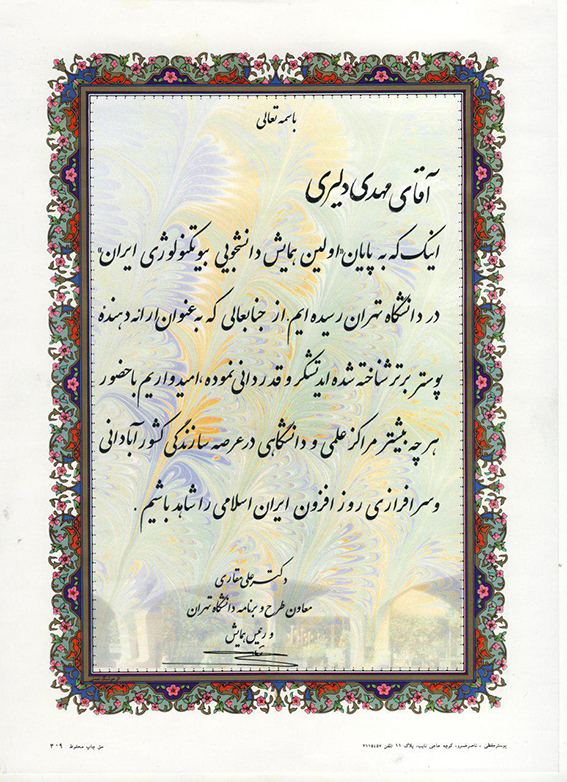 باسمه تعالی
آقای مهدی دلیری
اینک که به پایان "اولین همایش دانشجویی بیوتکنولوژی ایران"
در دانشگاه تهران رسیده ایم از جنابعالی که به عنوان ارائه دهنده
پوستر برتر شناخته شده اید تشکر و قدردانی نموده، امیدواریم با حضور
هر چه بیشتر مراکز علمی و دانشگاهی در عرصه سازندگی کشور آبادانی
و سرافرازی روز افزون ایران اسلامی را شاهد باشیم .
دکتر علی مقاری
معاون طرح و برنامه دانشگاه تهران
و رئیس همایش
حق چاپ محفوظ ۳۰۹
پوسترحقیقی ، ناصرخسرو، کوچه حاجی نایب، پلاک ۱۱ تلفن